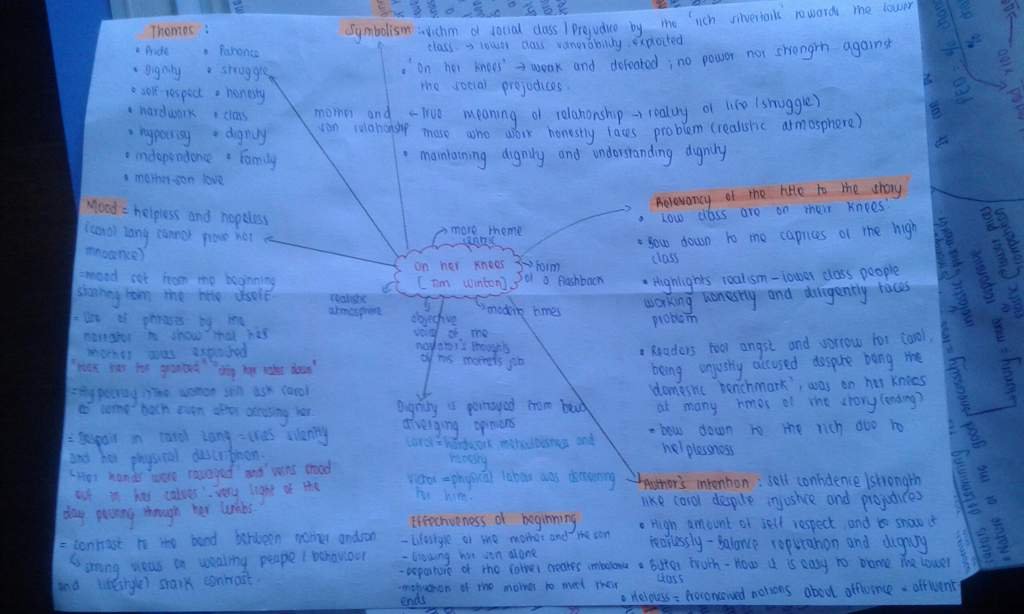 Themes :
• Pride • Patience
• Dignity • struggle
• self-respect • honesty
• hardwork • class
• hypocrisy • dignity
• independence • Family
• mother-son love
Symbolism :- victim of social class / Prejudice by the 'rich silvertails' towards the lower
class → lower class vulnerability exploited
• 'On her knees' → weak and defeated ; no power nor strength against
the social prejudices.
mother and ← True meaning of relationship → reality of life (struggle)
son relationship those who work honestly faces problem (realistic atmosphere)
• maintaining dignity and understanding dignity
Mood = helpless and hopeless
(carol lang cannot prove her
innocence)
= mood set from the beginning
starting from the title itself
= Use of phrases by the
narrator to show that his
mother was exploited
"took her for granted"
= Hypocrisy : The woman still ask carol
to come back even after accusing her
= Despair in carol Lang - cries silently
and her physical description.
"Her hands were ravaged and veins stood
out in her calves'. very light of the
day pouring through her limbs.
= contrast to the bond between mother and son
↳ strong views on wealthy people / behaviour
and lifestyle) stark contrast.
more theme
centric
On her knees
[Tim Winton]
form
of a flashback
realistic
atmosphere
modern times
objective
view of the
narrator's thoughts
of his mother's job
Relevancy of the title to the story
• 'Low class are on their knees'
• Bow down to the caprices of the high
class
• Highlights realism - lower class people
working honestly and diligently faces
problem
• Readers feel angst and sorrow for carol,
being unjustly accused despite being the
'domestic benchmark', was on her knees
at many times of the story (ending)
= bow down to the rich due to
helplessness
Dignity is portrayed from
diverging opinions
carol = hardwork meticulousness and
honesty
victor = physical labour was demeaning
for him.
Effectiveness of beginning
- Lifestyle of the mother and the son
- Growing her son alone
- Departure of the father creates imbalance
- motivation of the mother to meet their
ends
Author's intention : self confidence / strength
like carol despite injustice and prejudices
• High amount of self respect and to show it
fearlessly - Balance reputation and dignity
• Bitter truth - How it is easy to blame the lower
class
• Helpless = Preconceived notions about affluence = affluent